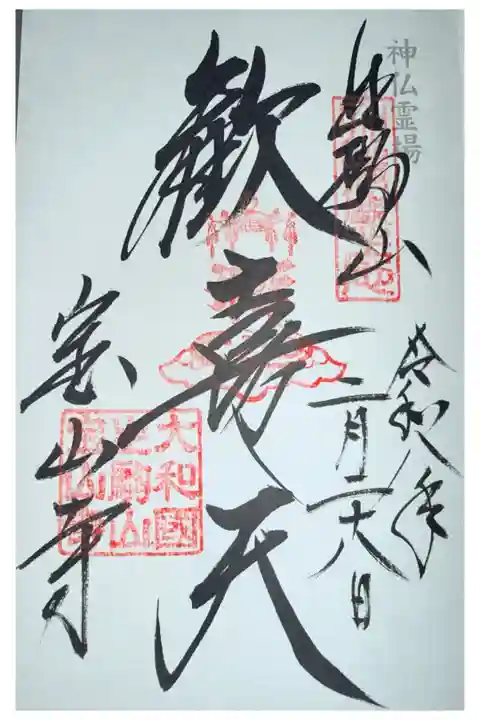 神仏霊場
生駒山
歓喜天
令和八年
二月二十八日
宝山寺
大和國
生駒山
寳山寺